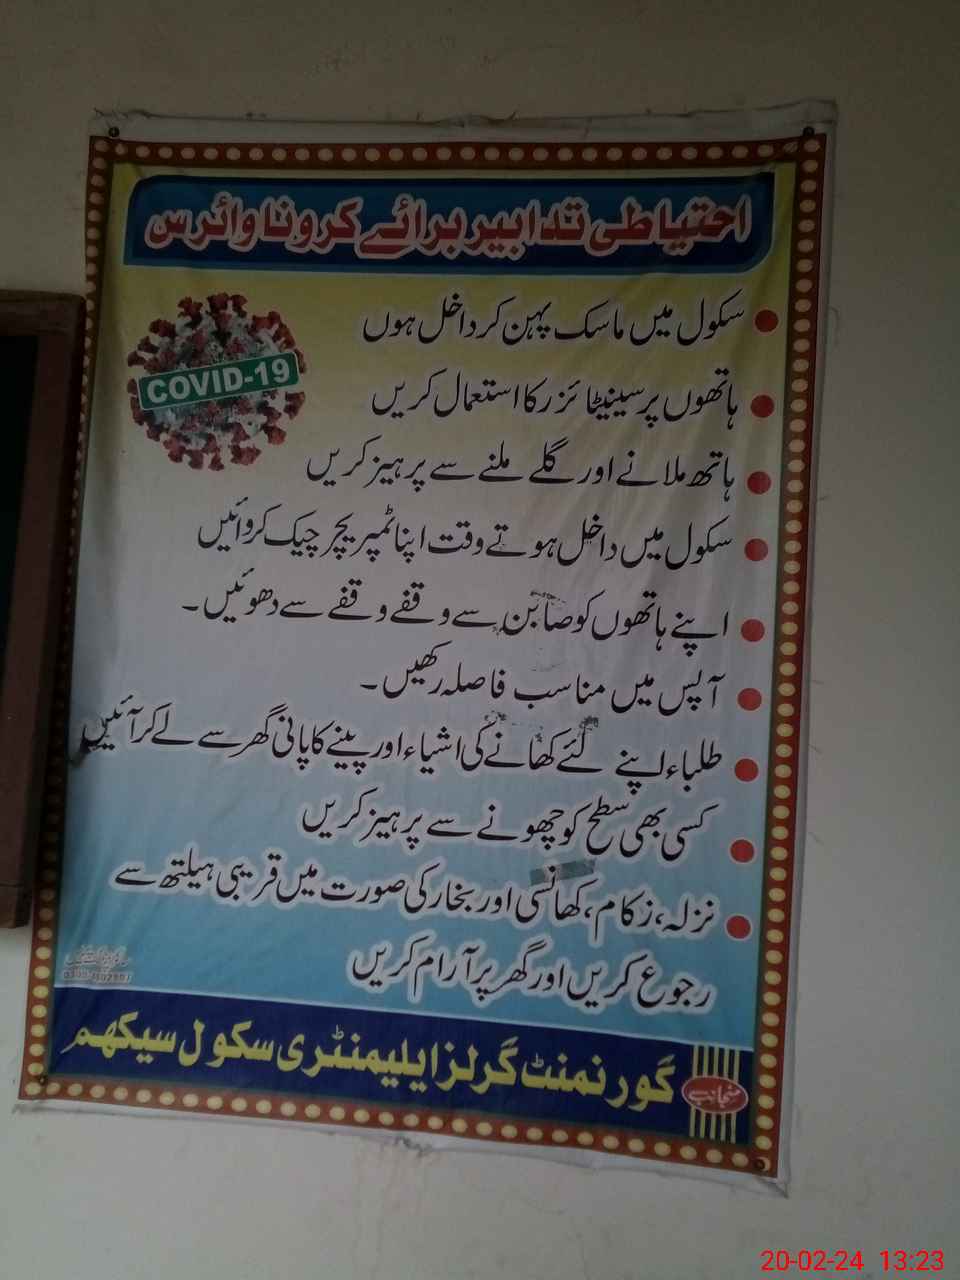 احتیاطی تدابیر برائے کرونا وائرس
COVID-19
سکول میں ماسک پہن کر داخل ہوں
ہاتھوں پر سینیٹائزر کا استعمال کریں
ہاتھ ملانے اور گلے ملنے سے پرہیز کریں
سکول میں داخل ہوتے وقت اپنا ٹمپریچر چیک کروائیں
اپنے ہاتھوں کو صابن سے وقفے وقفے سے دھوئیں۔
آپس میں مناسب فاصلہ رکھیں۔
طلباء اپنے لئے کھانے کی اشیاء اور پینے کا پانی گھر سے لے کر آئیں
کسی بھی سطح کو چھونے سے پرہیز کریں
نزلہ، زکام، کھانسی اور بخار کی صورت میں قریبی ہیلتھ سے
رجوع کریں اور گھر پر آرام کریں
منجانب
گورنمنٹ گرلز ایلیمنٹری سکول سیکھم
20-02-24 13:23